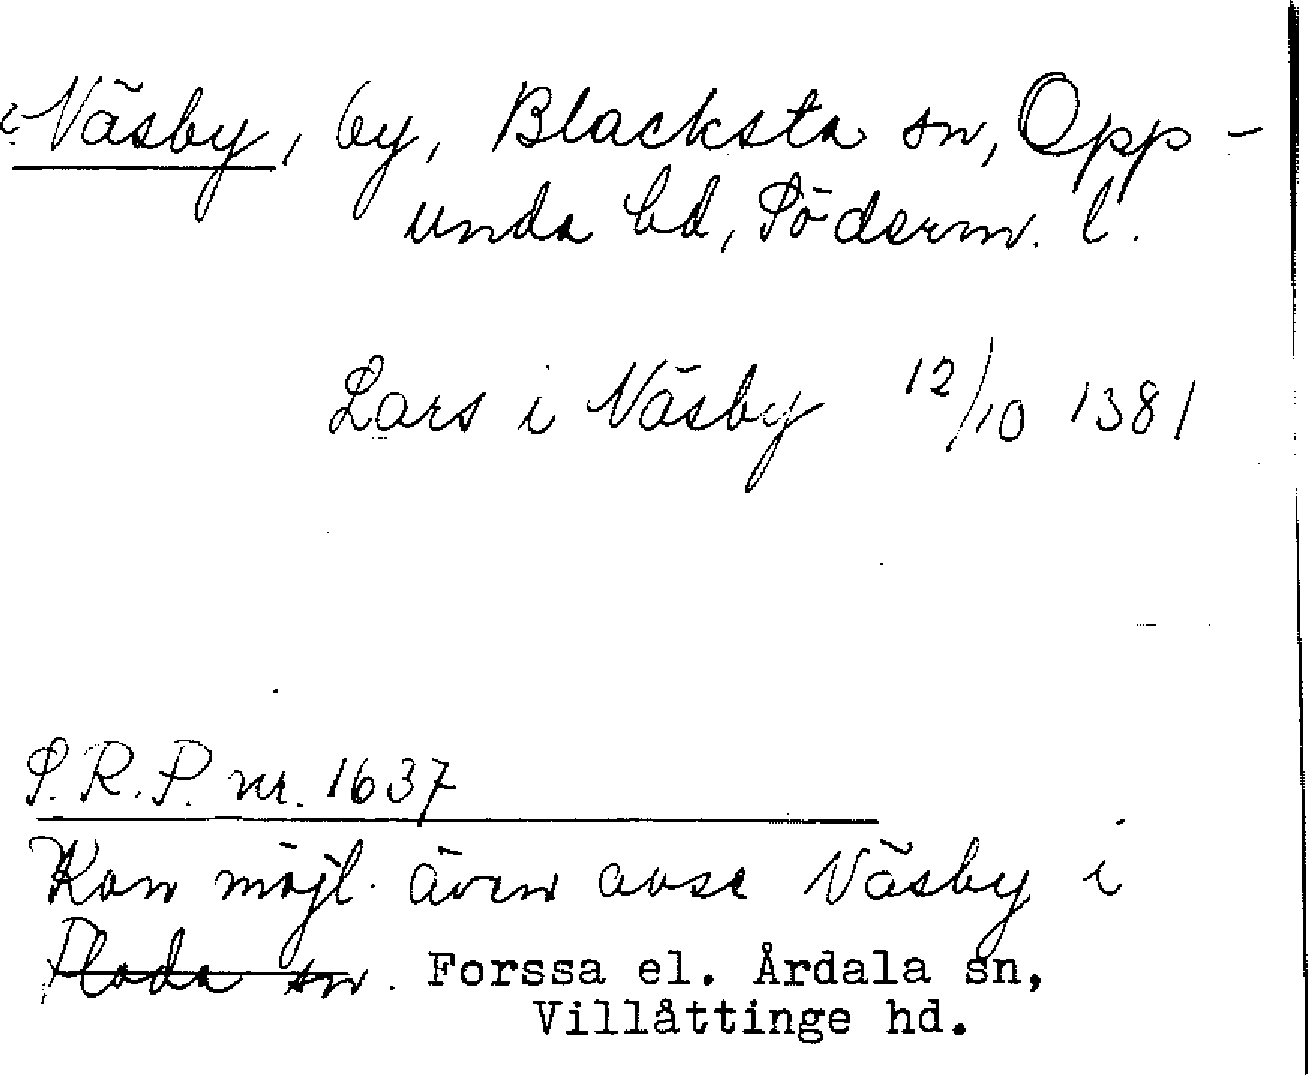 ? Näsby, by, Blacksta sn, Opp-
unda hd, Söderm. l.
Lars i Näsby 12/10 1381
S.R.P. nr. 1637
Kan möjl. även avse Näsby i
Floda sn. Forssa el. Årdala sn,
Villåttinge hd.